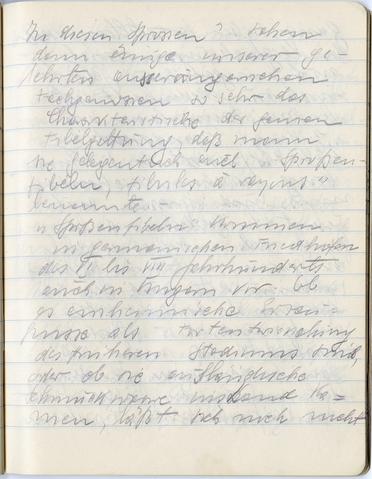 In diesen Sprossen? sehen
denn einige unserer ge-
lehrten ausserungarischen
Fachgenossen so sehr das
Charakteristische der ganzen
Fibelgattung, daß man
sie gelegentlich auch Sproßen-
fibeln, fibules à rayons"
benannte –
"Sproßenfibeln kommen
in germanischen Friedhöfen
des VI bis VIII Jahrhunderts
auch in Ungarn vor. Ob
es einheimische
als
des früheren Stadiums sind,
oder ob sie ausländische
ins Land ka=
men, läßt sich noch nicht